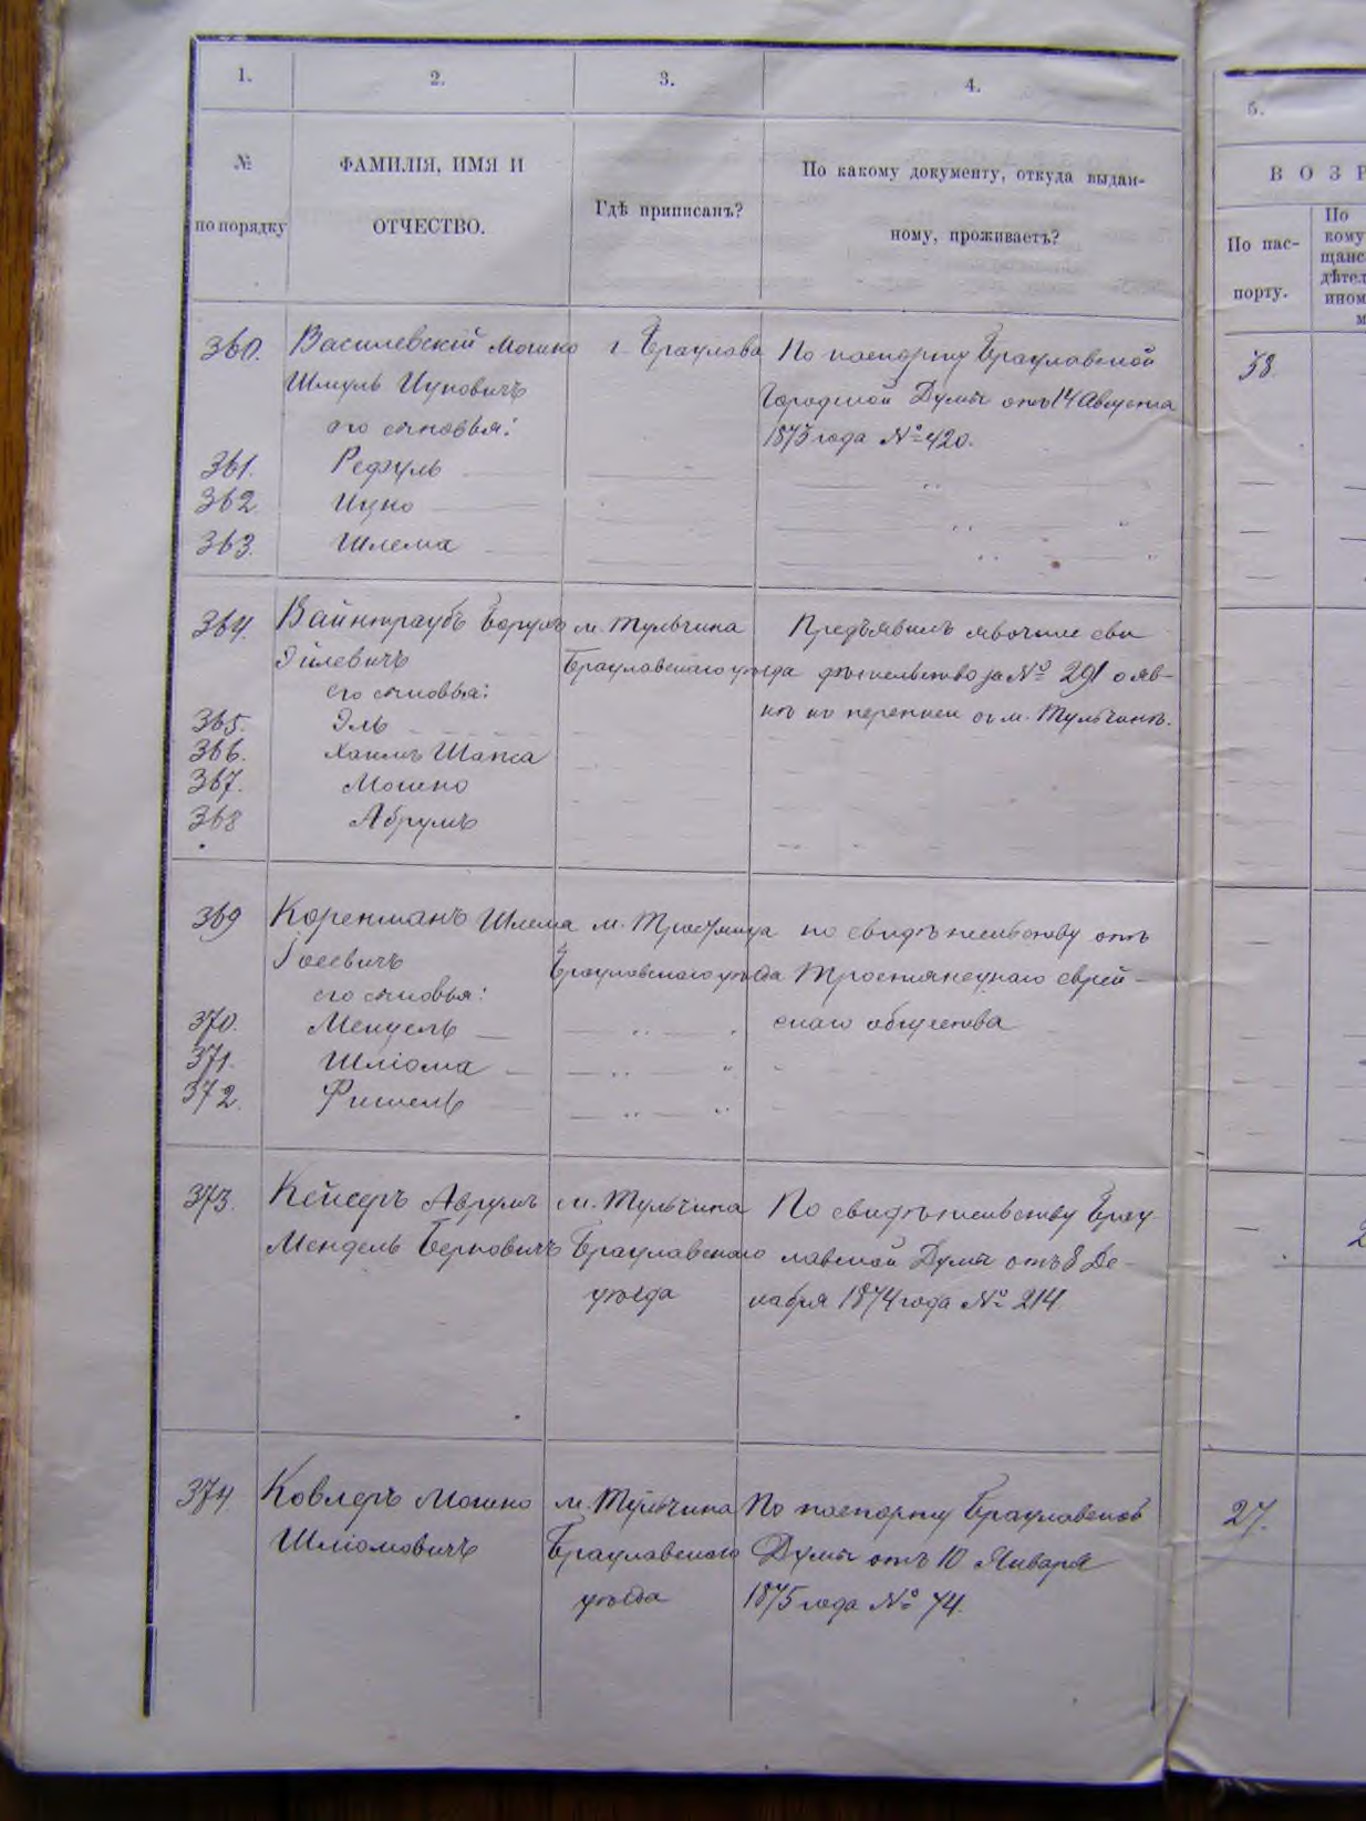 1.
2.
3.
4.
5.
№
по порядку
ФАМИЛІЯ, ИМЯ И
ОТЧЕСТВО.
Гдѣ приписанъ?
По какому документу, откуда выдан-
ному, проживаетъ?
ВОЗР
По пас-
порту.
По
кому
щанс
дѣтел
ином
м
360. Василевскій Мошко г. Брацлава По паспорту Брацлавской 38
Шмуль Ицковичъ Городской Думы отъ 14 Августа
его сыновья: 1873 года № 420.
361. Рефуль
362. Ицко
363. Шлема
364. Вайнтраубъ Борухъ м. Тульчина Предъявилъ явочное сви
Эйлевичъ Брацлавскаго уѣзда дѣтельство за № 291 о яв-
его сыновья: кѣ къ переписи въ м. Тульчинѣ.
365. Эль
366. Хаимъ Шапса
367. Мошко
368 Абрумъ
369 Коренманъ Шлема м. Тростянца по свидѣтельству отъ
Іосевичъ Брацлавскаго уѣзда Тростянецкаго еврей-
его сыновья:
370. Мендель скаго общества
371. Шліома
372. Фишель
373. Кейсеръ Аврумъ м. Тульчина По свидѣтельству Брац-
Мендель Берковичъ Брацлавскаго лавской Думы отъ 8 Де-
уѣзда кабря 1874 года № 214
374 Ковлеръ Мошко м. Тульчина По паспорту Брацлавской 27.
Шліомовичъ Брацлавскаго Думы отъ 10 Января
уѣзда 1875 года № 74.